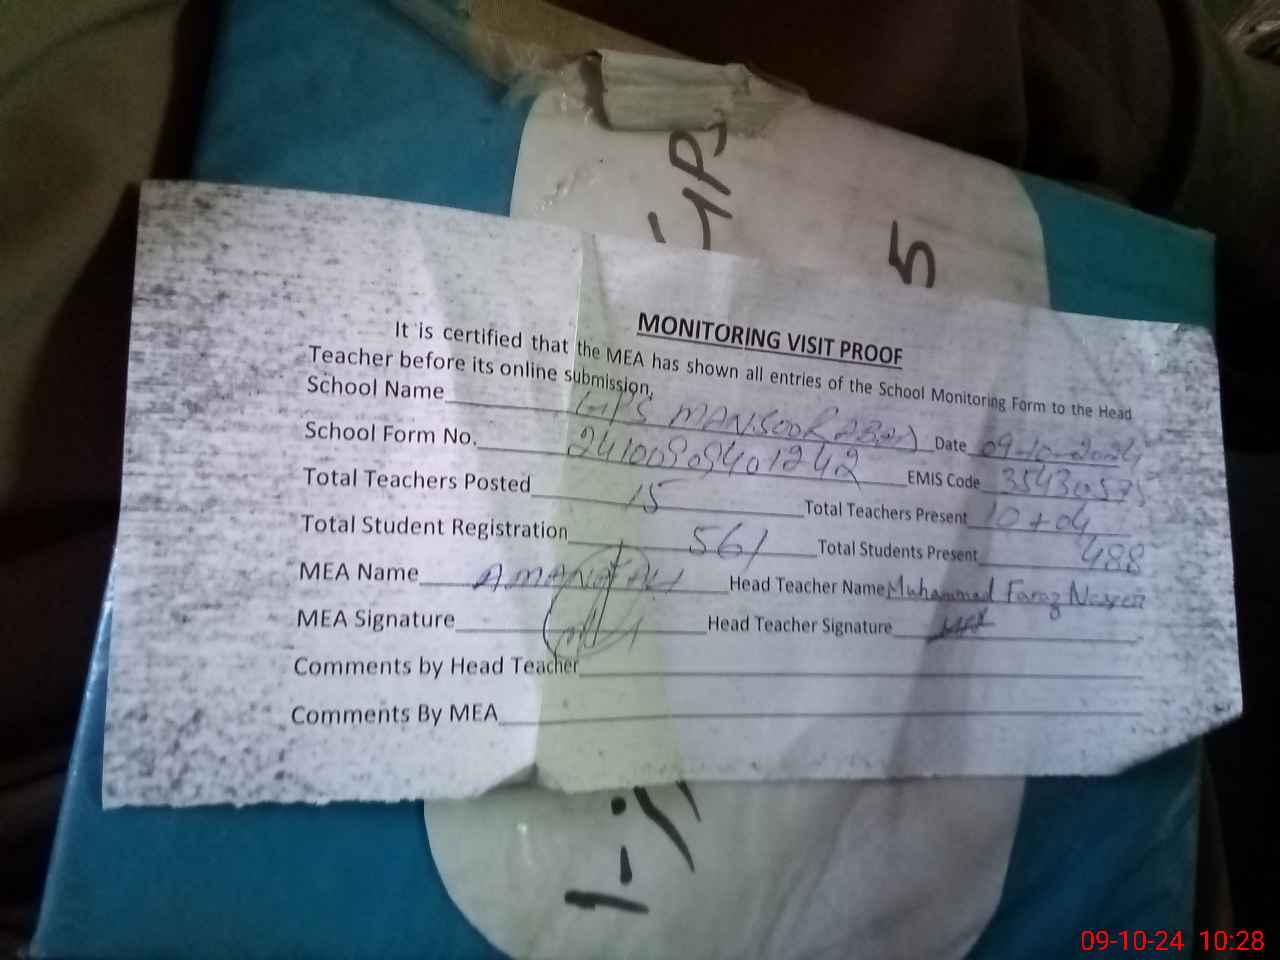 GPS
5
MONITORING VISIT PROOF
It is certified that the MEA has shown all entries of the School Monitoring Form to the Head
Teacher before its online submission.
School Name GPS MANSOOR Date 09-10-2024
School Form No. 24100909401242 EMIS Code 35430575
Total Teachers Posted 15 Total Teachers Present 10+04
Total Student Registration 561 Total Students Present 488
MEA Name AMANATALI Head Teacher Name Muhammad Faraz
MEA Signature Head Teacher Signature
Comments by Head Teacher
Comments By MEA
09-10-24 10:28